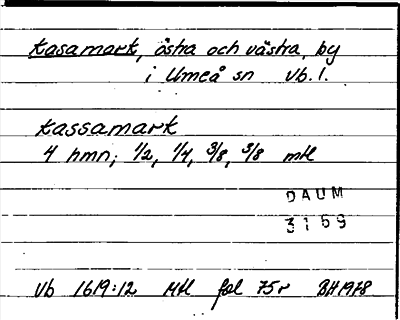 Kasamark, östra och västra, by
i Umeå sn Vb. l.
Kassamark
4 hmn; 1/2, 1/4, 3/8, 3/8 mtl
DAUM
3159
Vb 1619:12 Mtl fol 75r BH1978